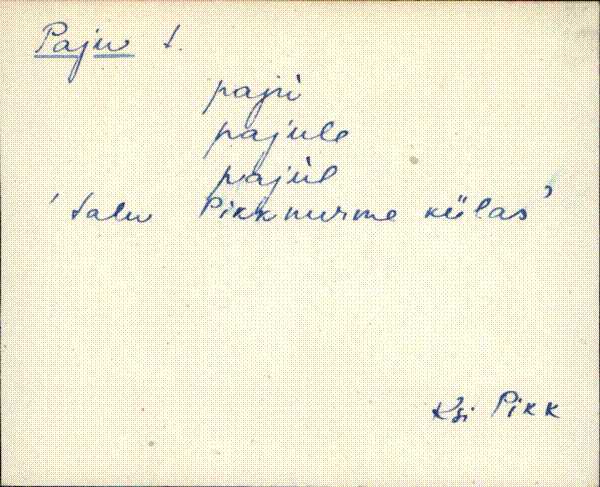 Paju t.
pajù
pajule
pajùl
'talu Pikknurme külas'
Ksi Pikk